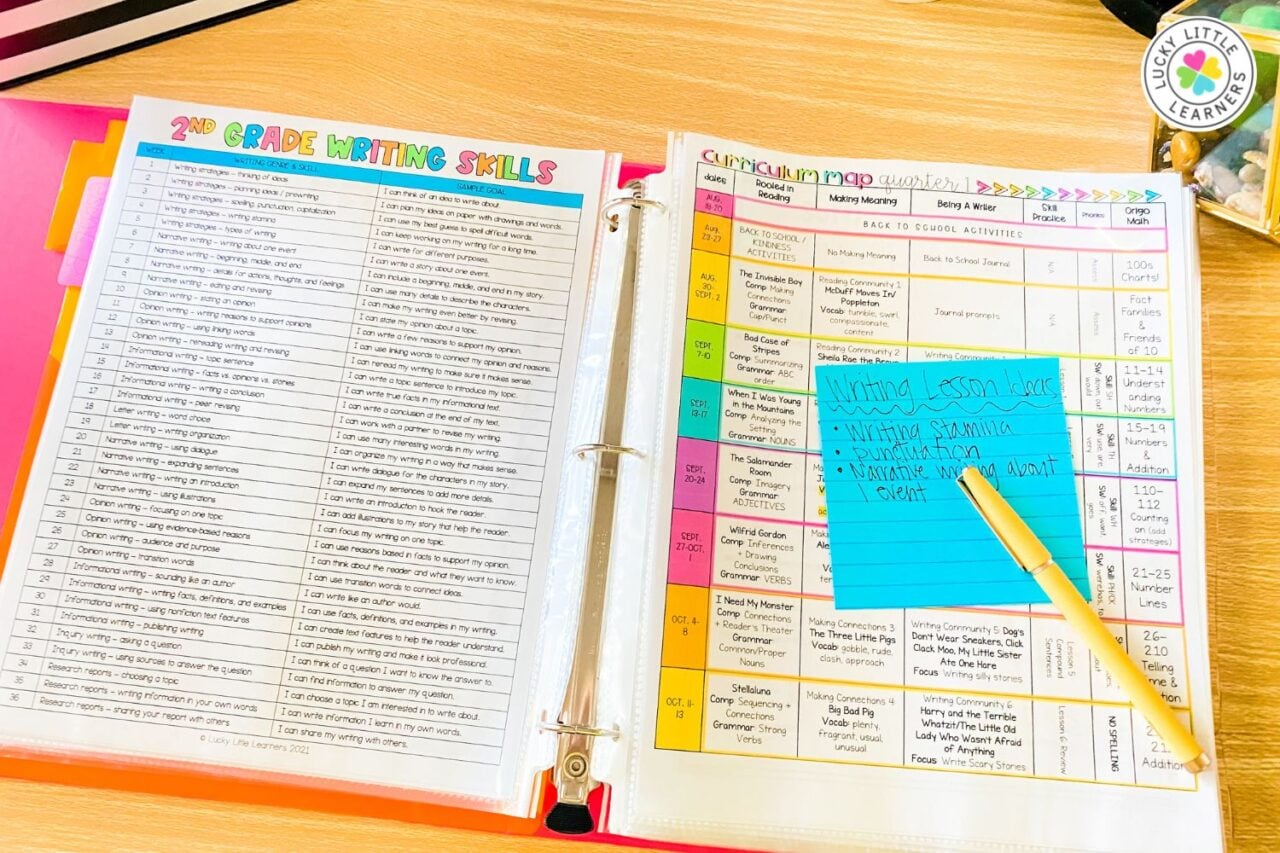 LUCKY LITTLE LEARNERS
2ND GRADE WRITING SKILLS
WEEK WRITING GENRE & SKILL SAMPLE GOAL
1 Writing strategies – thinking of ideas I can think of an idea to write about.
2 Writing strategies – planning ideas / prewriting I can plan my ideas on paper with drawings and words.
3 Writing strategies – spelling, punctuation, capitalization I can use my best guess to spell difficult words.
4 Writing strategies – writing stamina I can keep working on my writing for a long time.
5 Writing strategies – types of writing I can write for different purposes.
6 Narrative writing – writing about one event I can write a story about one event.
7 Narrative writing – beginning, middle, and end I can include a beginning, middle, and end in my story.
8 Narrative writing – details for actions, thoughts, and feelings I can use many details to describe the characters.
9 Narrative writing – editing and revising I can make my writing even better by revising.
10 Opinion writing – stating an opinion I can state my opinion about a topic.
11 Opinion writing – writing reasons to support opinions I can write a few reasons to support my opinion.
12 Opinion writing – using linking words I can use linking words to connect my opinion and reasons.
13 Opinion writing – rereading writing and revising I can reread my writing to make sure it makes sense.
14 Informational writing – topic sentence I can write a topic sentence to introduce my topic.
15 Informational writing – facts vs. opinions vs. stories I can write true facts in my informational text.
16 Informational writing – writing a conclusion I can write a conclusion at the end of my text.
17 Informational writing – peer revising I can work with a partner to revise my writing.
18 Letter writing – word choice I can use many interesting words in my writing.
19 Letter writing – writing organization I can organize my writing in a way that makes sense.
20 Narrative writing – using dialogue I can write dialogue for the characters in my story.
21 Narrative writing – expanding sentences I can expand my sentences to add more details.
22 Narrative writing – writing an introduction I can write an introduction to hook the reader.
23 Narrative writing – using illustrations I can add illustrations to my story that help the reader.
24 Opinion writing – focusing on one topic I can focus my writing on one topic.
25 Opinion writing – using evidence-based reasons I can use reasons based in facts to support my opinion.
26 Opinion writing – audience and purpose I can think about the reader and what they want to know.
27 Opinion writing – transition words I can use transition words to connect ideas.
28 Informational writing – sounding like an author I can write like an author would.
29 Informational writing – writing facts, definitions, and examples I can use facts, definitions, and examples in my writing.
30 Informational writing – using nonfiction text features I can create text features to help the reader understand.
31 Informational writing – publishing writing I can publish my writing and make it look professional.
32 Inquiry writing – asking a question I can think of a question I want to know the answer to.
33 Inquiry writing – using sources to answer the question I can find information to answer my question.
34 Research reports – choosing a topic I can choose a topic I am interested in to write about.
35 Research reports – writing information in your own words I can write information I learn in my own words.
36 Research reports – sharing your report with others I can share my writing with others.
© Lucky Little Learners 2021
curriculum map quarter 1
dates Rooted in Reading Making Meaning Being A Writer Skill Practice Phonics Origo Math
AUG. 18-20 BACK TO SCHOOL ACTIVITIES
Aug. 23-27
BACK TO SCHOOL / KINDNESS ACTIVITIES
No Making Meaning
Back to School Journal
N/A
Assess
100s Charts!
AUG. 30- SEPT. 2
The Invisible Boy
Comp: Making Connections
Grammar: Cap/Punct
Reading Community 1
McDuff Moves In/ Poppleton
Vocab: tumble, swirl, compassionate, content
Journal prompts
N/A
Assess
Fact Families & Friends of 10
SEPT. 7-10
Bad Case of Stripes
Comp: Summarizing
Grammar: ABC order
Reading Community 2
Sheila Rae the
Writing
Skill: SH
SW: down, out, would
1.1-1.4 Understanding Numbers
SEPT. 13-17
When I Was Young in the Mountains
Comp: Analyzing the Setting
Grammar: NOUNS
Skill: TH
SW: use, are, very
1.5-1.9 Numbers & Addition
SEPT. 20-24
The Salamander Room
Comp: Imagery
Grammar: ADJECTIVES
Skill: WH
SW: off, want, goes
1.10-1.12 Counting on (add strategies)
SEPT. 27-OCT. 1
Wilfrid Gordon
Comp: Inferences + Drawing Conclusions
Grammar: VERBS
Skill: PH/CK
2.1-2.5 Number Lines
OCT. 4-8
I Need My Monster
Comp: Connections + Reader's Theater
Grammar: Common/Proper Nouns
Making Connections 3
The Three Little Pigs
Vocab: gobble, rude, clash, approach
Writing Community 5: Dog's Don't Wear Sneakers, Click Clack Moo, My Little Sister Ate One Hare
Focus: Writing silly stories
Lesson 5: Compound Sentences
2.6-2.10 Telling
OCT. 11-13
Stellaluna
Comp: Sequencing + Connections
Grammar: Strong Verbs
Making Connections 4
Big Bad Pig
Vocab: plenty, fragrant, usual, unusual
Writing Community 6
Harry and the Terrible Whatzit/The Little Old Lady Who Wasn't Afraid of Anything
Focus: Write Scary Stories
Lesson 6: Review
NO SPELLING
Addition
Writing Lesson Ideas
• Writing stamina
• punctuation
• Narrative writing about
1 event